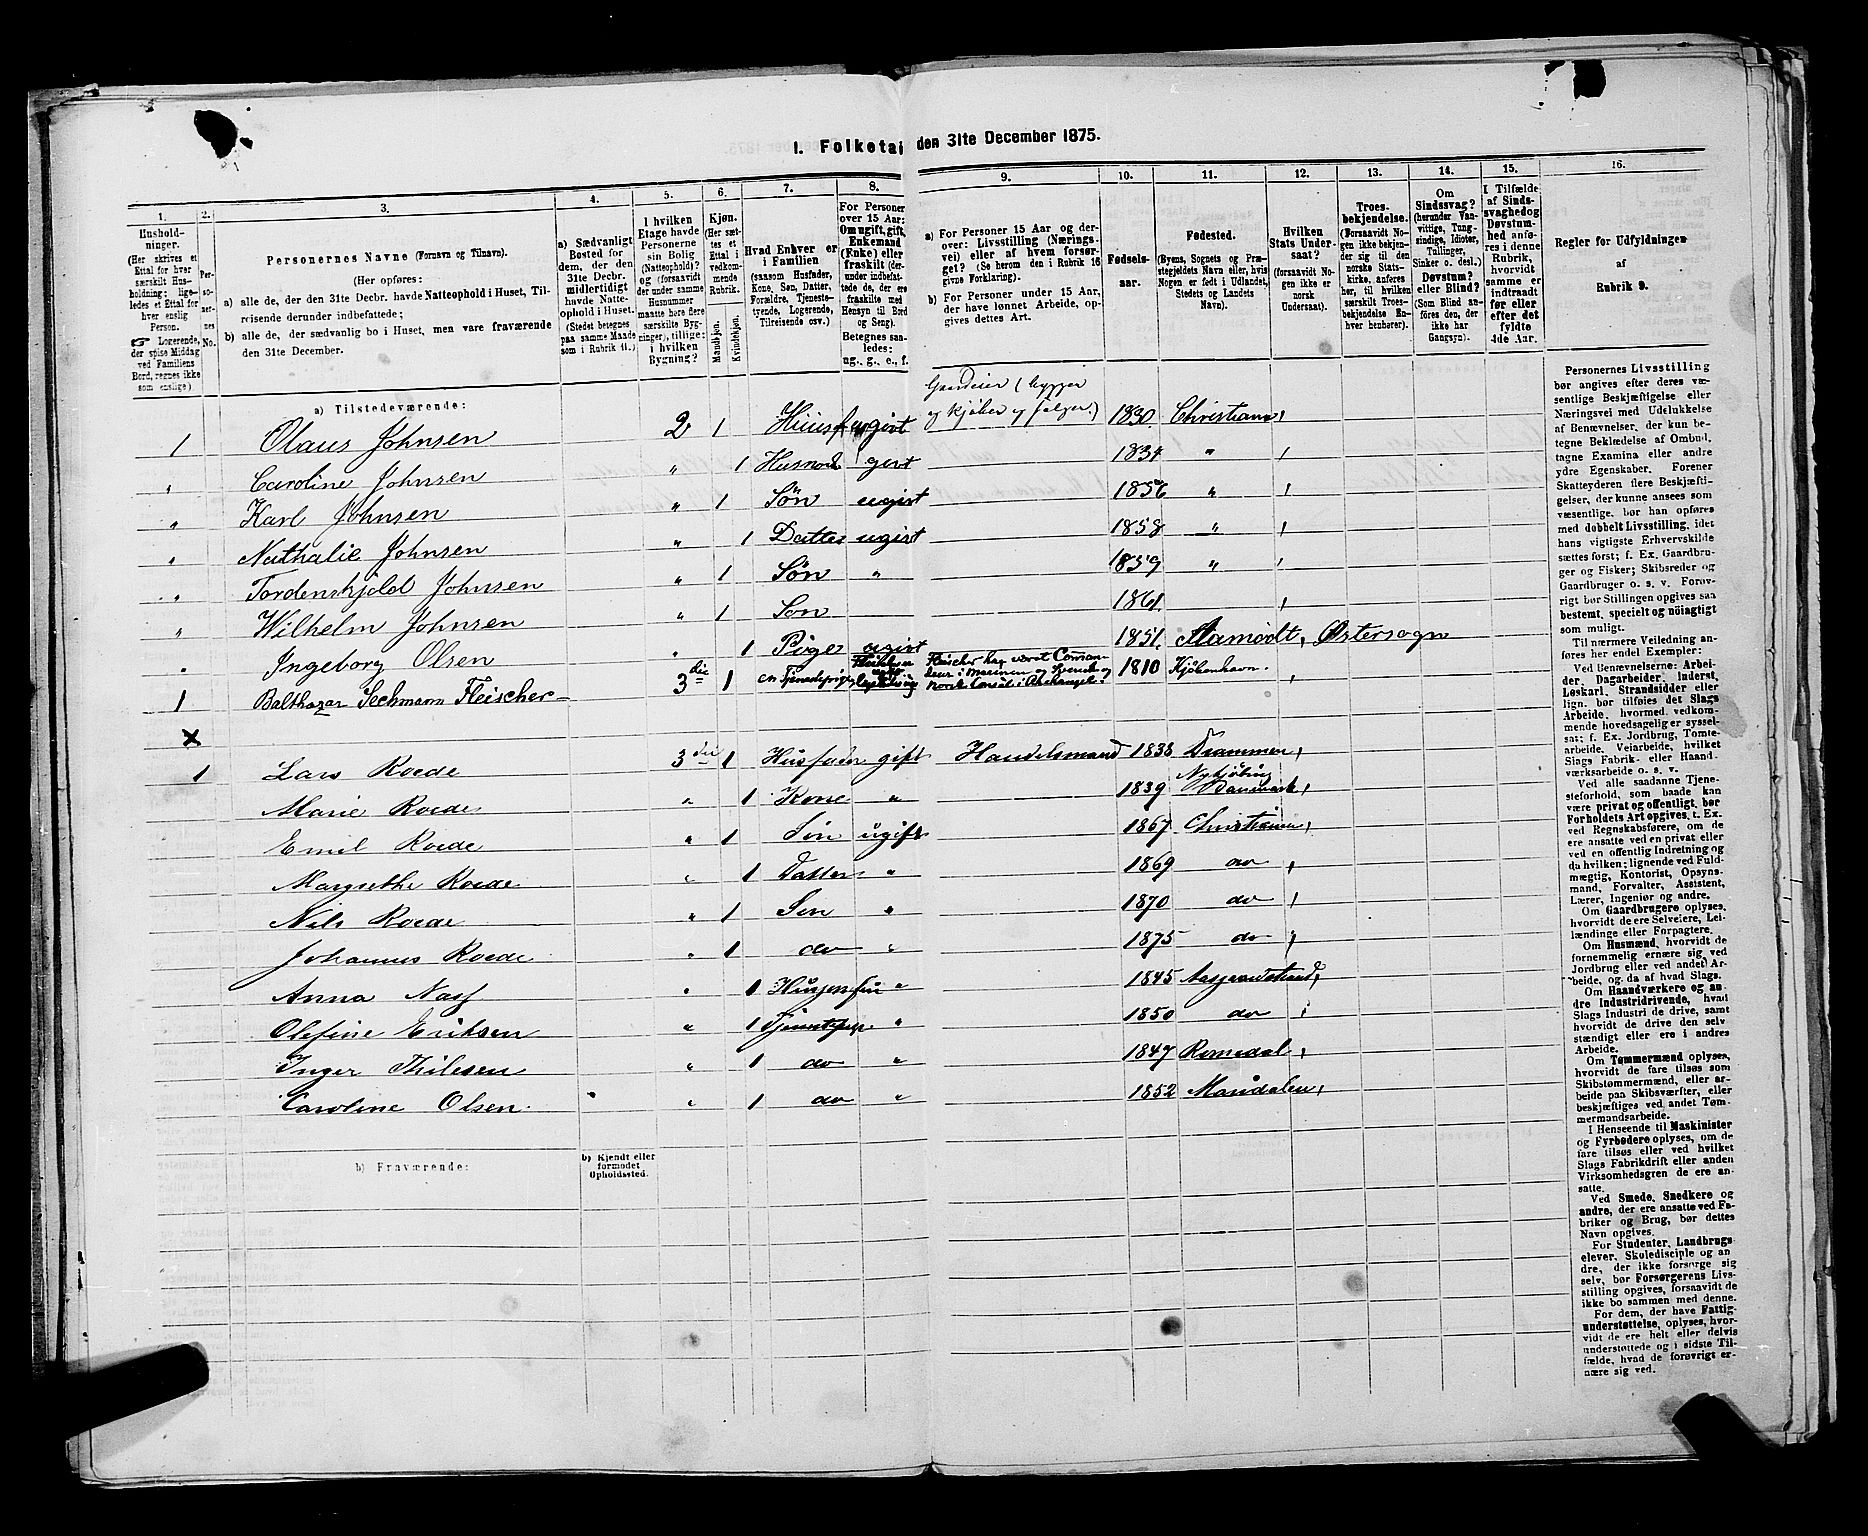 1. Folketæl den 31te December 1875.
1. 2. 3. 4. 5. 6. 7. 8. 9. 10. 11. 12. 13. 14. 15. 16.
Hushold-
ninger.
(Her skrives et
Ettal for hver
særskilt Hus-
holdning; lige-
ledes et Ettal for
hver enslig
Person.
☞ Logerende,
der spise Middag
ved Familiens
Bord, regnes ikke
som enslige).
Per-
so-
ner-
nes
No.
Personernes Navne (Fornavn og Tilnavn).
(Her opføres:
a) alle de, der den 31te Decbr. havde Natteophold i Huset, Til-
reisende derunder indbefattede;
b) alle de, der sædvanlig bo i Huset, men vare fraværende
den 31te December.
a) Sædvanligt
Bosted for
dem, der den
31te Decbr.
midlertidigt
havde Natte-
ophold i Huset.
(Stedet betegnes
paa samme Maade
som i Rubrik 11.)
I hvilken
Etage havde
Personerne
sin Bolig
(Natteophold)?
og (forsaavidt
der under samme
Husnummer
maatte høre flere
særskilte Byg-
ninger), tillige:
i hvilken
Bygning?
Kjøn.
(Her sæt-
tes et
Ettal i
vedkom-
mende
Rubrik.
Mandkjøn.
Kvindekjøn.
Hvad Enhver er
i Familien
(saasom Husfader,
Kone, Søn, Datter,
Forældre, Tjeneste-
tyende, Logerende,
Tilreisende osv.)
For Personer
over 15 Aar:
Om ugift, gift,
Enkemand
(Enke) eller
fraskilt (der-
under indbefat-
tede de, der ere
fraskilte med
Hensyn til Bord
og Seng).
Betegnes saa-
ledes:
ug., g., e., f.
a) For Personer 15 Aar og der-
over: Livsstilling (Nærings-
vei) eller af hvem forsør-
get? (Se herom den i Rubrik 16
givne Forklaring).
b) For Personer under 15 Aar,
der have lønnet Arbeide, op-
gives dettes Art.
Fødsels-
aar.
Fødested.
(Byens, Sognets og Præ-
stegjeldets Navn eller, hvis
Nogen er født i Udlandet,
Stedets og Landets
Navn).
Hvilken
Stats Under-
saat?
(forsaavidt No-
gen ikke er
norsk
Undersaat).
Troes-
bekjendelse.
(Forsaavidt No-
gen ikke bekjen-
der sig til den
norske Stats-
kirke, anføres
her, til hvilken
særskilt Troes-
bekjendelse En-
hver henhører).
Om
Sindssvag?
(herunder Van-
vittige, Tung-
sindige, Idioter,
Tullinger,
Sinker o. desl.)
Døvstum?
eller Blind?
(Som Blind an-
føres den, der
ikke har
Gangsyn).
I Tilfælde
af Sinds-
svaghed og
Døvstum-
hed anfø-
res i denne
Rubrik,
hvorvidt
samme er
indtraadt
før eller
efter det
fyldte
4de Aar.
Regler for Udfyldningen
af
Rubrik 9.
a) Tilstedeværende:
Gaardeier (bygger
og kjøber og sælger.)
1 Olaus Johnsen 2 1 ugivt 1830 Christiania
" Caroline Johnsen " 1 givt 1834 "
" Karl Johnsen " 1 Søn ugivt 1856 "
" Nathalie Johnsen " 1 Datter ugivt 1858 "
" Tordenskjold Johnsen " 1 Søn " 1859 "
" Wilhelm Johnsen " 1 Søn 1861
" Ingeborg Olsen " 1 Piger ugivt 1851 Østersogn
1 Balthazar Sechmann Fleischer 3die 1 Fleischer har været Comman-
deur i Marinen og Svensk og
Norsk Consul i Archangel. 1810 Kjøbenhavn.
x
1 Lars Roede 3die 1 Husfader gift Handelsmand 1838 Drammen
Marie Roede " 1 Kone " 1839 Nykjøbing
Danmark
Emil Roede " 1 Søn ugift 1867 Christiania
Margrethe Roede " 1 Datter " 1869 do
Nils Roede " 1 Søn " 1870 do
Johannes Roede " 1 do " 1875 do
Anna Næss " 1 " 1845 Aasgaardstrand
Olefine Eriksen " 1 " 1850 do
Inger Thilesen " 1 do " 1847 Romedal
Caroline Olsen " 1 do " 1852 Mandalen
b) Fraværende:
b) Kjendt eller
formodet
Opholdssted.
Personernes Livsstilling
bør angives efter deres væ-
sentlige Beskjæftigelse eller
Næringsvei med Udelukkelse
af Benævnelser, der kun be-
tegne Beklædelse af Ombud,
tagne Examina eller andre
ydre Egenskaber. Forener
Skatteyderen flere Beskjæfti-
gelser, der kunne ansees som
væsentlige, bør han opføres
med dobbelt Livsstilling, idet
hans vigtigste Erhvervskilde
sættes først; f. Ex. Gaardbru-
ger og Fisker; Skibsreder og
Gaardbruger o. s. v. Forøv-
rigt bør Stillingen opgives saa
bestemt, specielt og nöiagtigt
som muligt.
Til nærmere Veiledning an-
føres her endel Exempler:
Ved Benævnelserne: Arbei-
der, Dagarbeider, Inderst,
Løskarl, Strandsidder eller
lign. bør tilføies det Slags
Arbeide, hvormed vedkom-
mende hovedsagelig er syssel-
sat; f. Ex. Jordbrug, Tomte-
arbeide, Veiarbeide, hvilket
Slags Fabrik- eller Haand-
værksarbeide o. s. v.
Ved alle saadanne Tjene-
steforhold, som baade kan
være privat og offentligt, bør
Forholdets Art opgives, t. Ex.
ved Regnskabsførere, om de
ere ansatte ved en privat eller
ved en offentlig Indretning og
da hvilken; lignende ved Fuld-
mægtig, Kontorist, Opsyns-
mand, Forvalter, Assistent,
Lærer, Ingeniør og andre.
Om Gaardbrugere oplyses,
hvorvidt de ere Selveiere, Lei-
lændinge eller Forpagtere.
Om Husmænd, hvorvidt de
fornemmelig ernære sig ved
Jordbrug eller ved andet Ar-
beide, og da af hvad Slags.
Om Haandværkere og an-
dre Industridrivende, hvad
Slags Industri de drive, samt
hvorvidt de drive den selv-
stændigt eller ere i andres
Arbeide.
Om Tømmermænd oplyses,
hvorvidt de fare tilsøs som
Skibstømmermænd, eller ar-
beide paa Skibsværfter, eller
beskjæftiges ved andet Tøm-
mermandsarbeide.
I Henseende til Maskinister
og Fyrbødere oplyses, om de
fare tilsøs eller ved hvilket
Slags Fabrikdrift eller anden
Virksomhedsgren de ere an-
satte.
Ved Smede, Snedkere og
andre, der ere ansatte ved Fa-
briker og Brug, bør dettes
Navn opgives.
For Studenter, Landbrugs-
elever, Skoledisciple og an-
dre, der ikke forsørge sig
selv, bør Forsørgerens Livs-
stilling opgives, forsaavidt de
ikke bo sammen med denne.
For dem, der have Fattig-
understøttelse, oplyses, hvor-
vidt de ere helt eller delvis
understøttede og i sidste Til-
fælde, hvad de forøvrigt er-
nære sig ved.